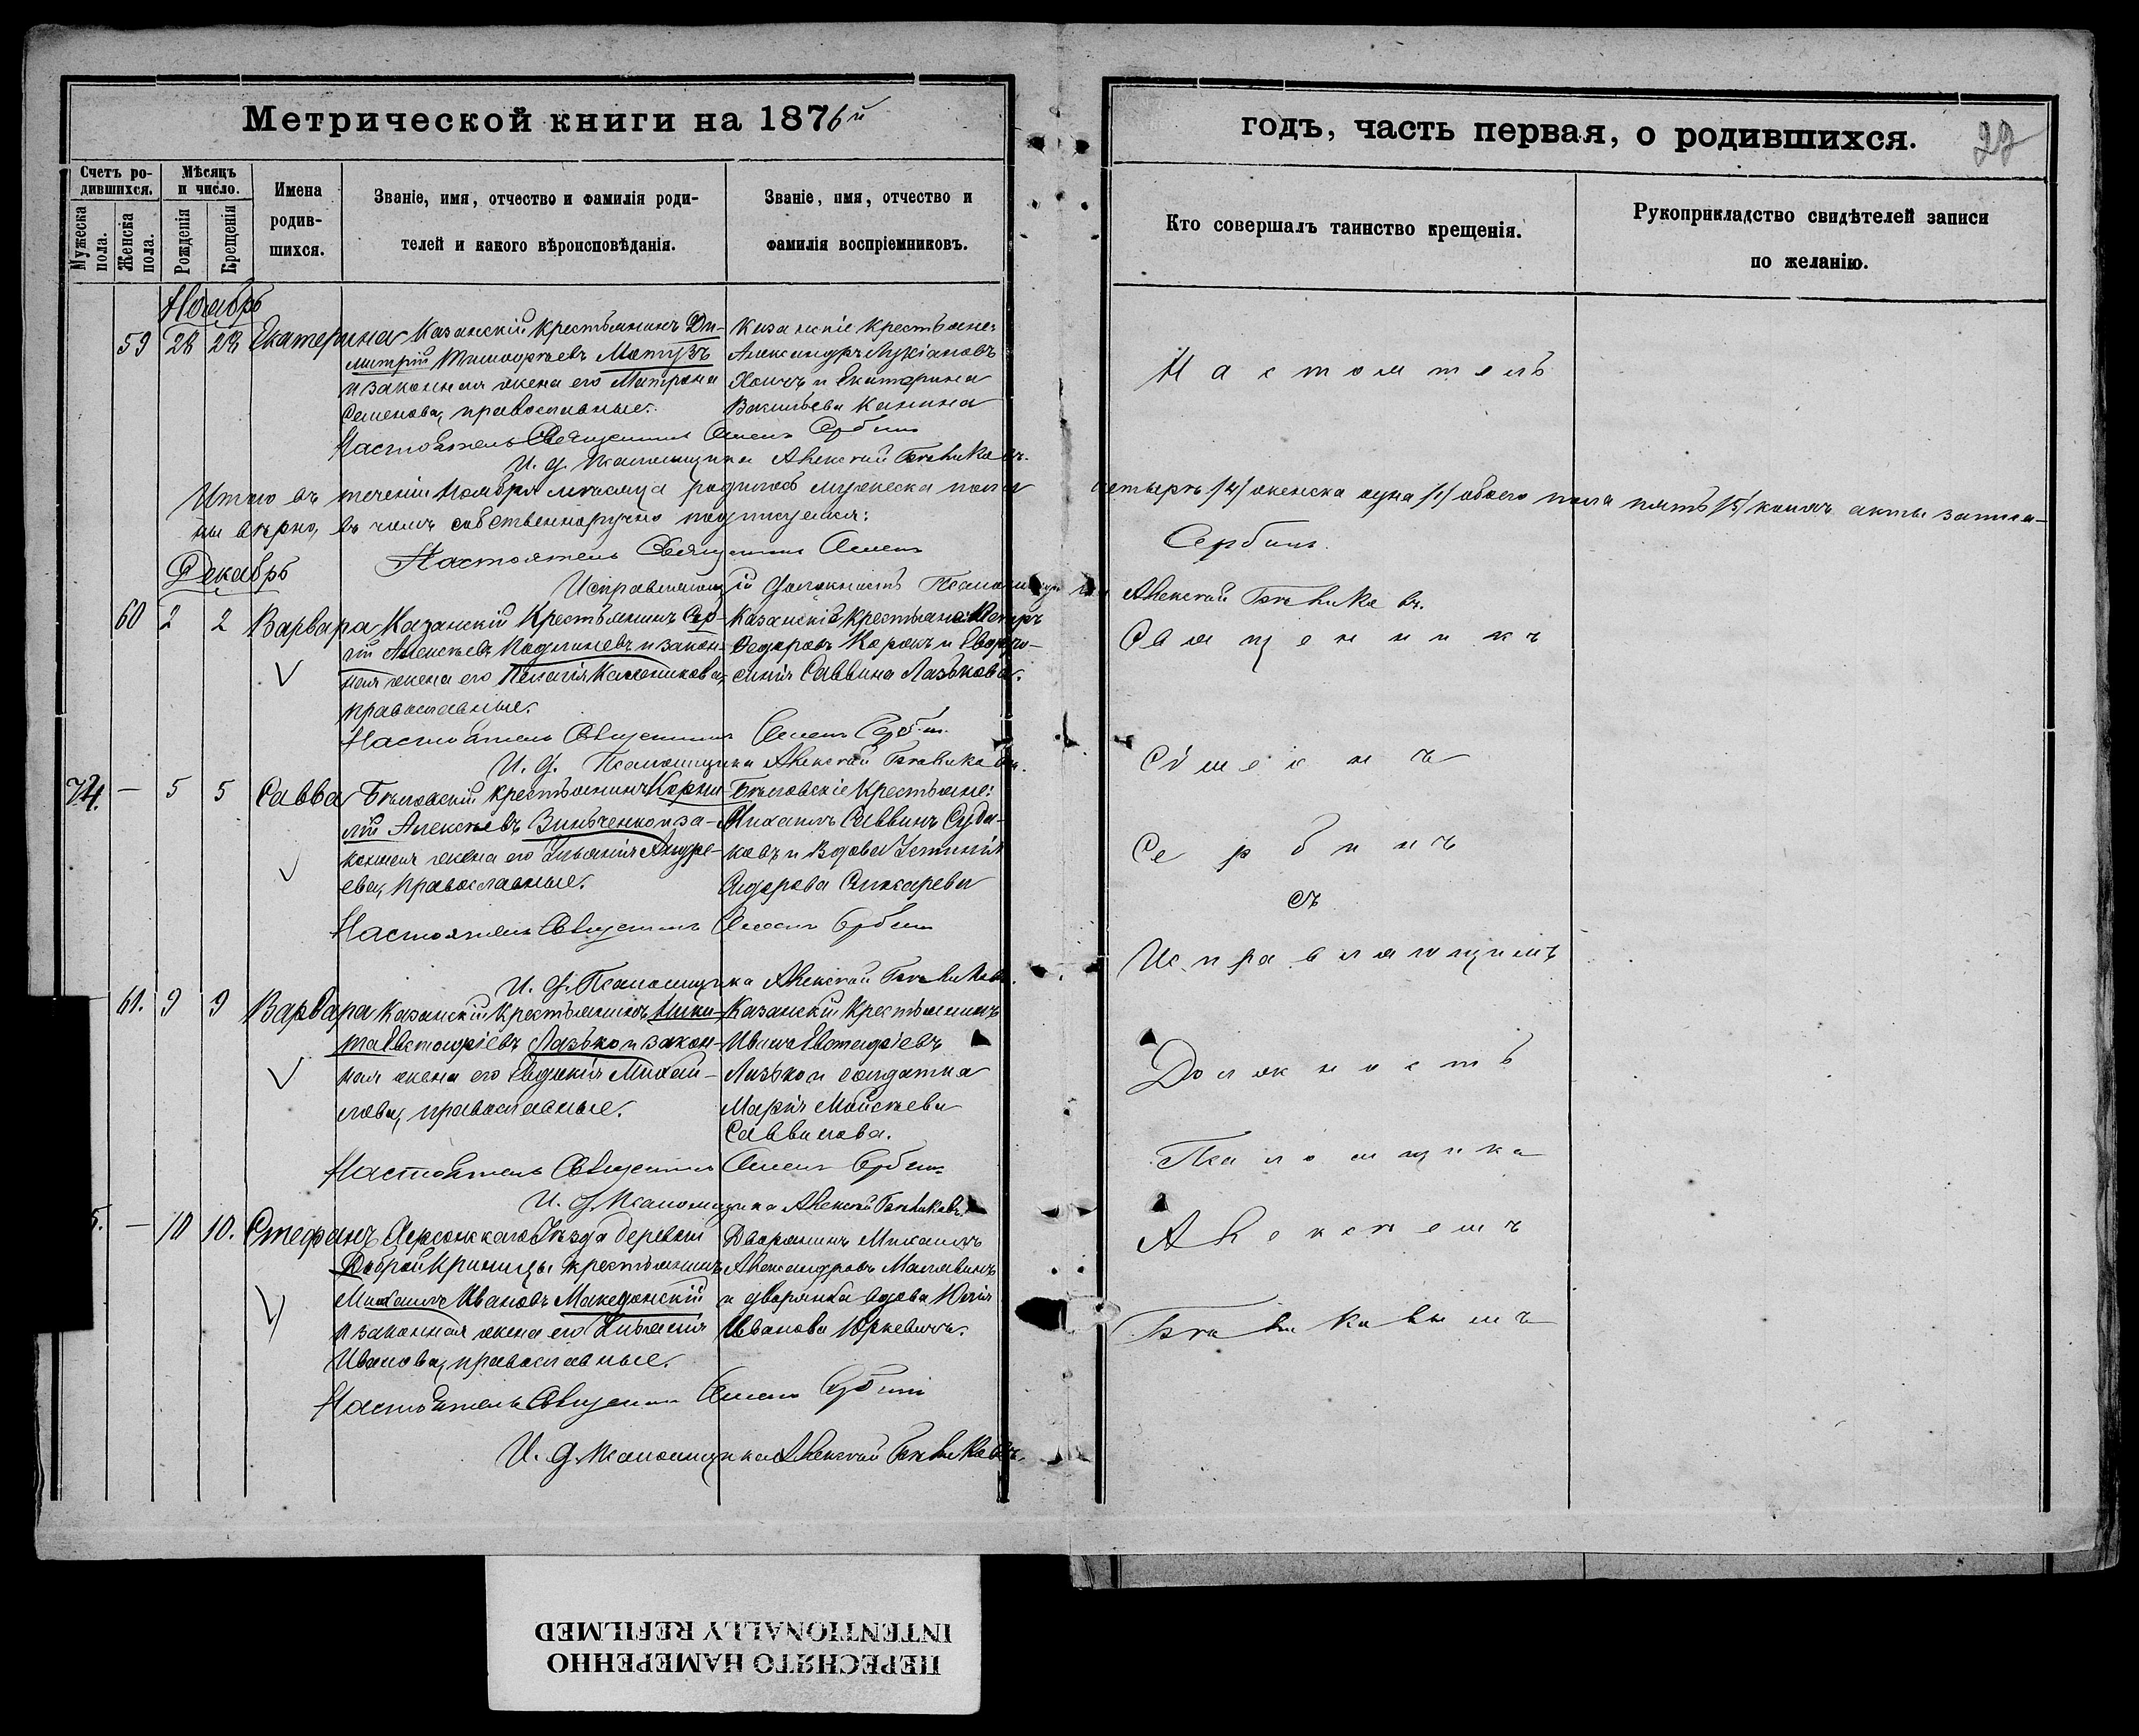 Метрической книги на 1876й
годъ, часть первая, о родившихся.
Счетъ ро-
дившихся.
Мѣсяцъ
и число.
Мужеска
пола.
Женска
пола.
Рожденія
Крещенія
Имена
родив-
шихся.
Званіе, имя, отчество и фамилія роди-
телей и какого вѣроисповѣданія.
Званіе, имя, отчество и
фамилія воспріемниковъ.
Кто совершалъ таинство крещенія.
Рукоприкладство свидѣтелей записи
по желанію.
Ноябрь
59 28 28 Екатерина
Казанскій крестьянинъ Ди-
митрій Тимофеевъ
и законная жена его Матрона
Семенова, православные.
Казанскіе крестьяне:
Александръ Лукіановъ
и Екатерина
Васильева Канина
Настоятель Священникъ Симеонъ Сербинъ
И. д. Псаломщика Алексѣй
Итого въ теченіи Ноября мѣсяца родилось мужеска пола четыре /4/ женска одна /1/ обоего пола пять /5/ коихъ акты записа-
ны вѣрно, въ чемъ собственноручно подписуемся:
Настоятель Священникъ Симеонъ Сербинъ.
Исправляющій должность Псаломщика Алексѣй
Декабрь
60 2 2 Варвара
Казанскій Крестьянинъ Сер-
гій Алексѣевъ и закон-
ная жена его Пелагія
православные.
Казанскіе крестьяне: Петръ
Федоровъ и Евфро-
синія Саввина Лазькова.
Настоятель Священникъ Симеонъ Сербинъ
И. д. Псаломщика Алексѣй
74. — 5 5 Савва
Бѣловскій крестьянинъ Корни-
лій Алексѣевъ Зинченко и за-
конная жена его Андре-
ева, православные.
Бѣловскіе Крестьяне:
Михаилъ Саввинъ Суда-
ковъ и Вдова Устинія
Сидорова
Настоятель Священникъ Симеонъ Сербинъ
И. д. Псаломщика Алексѣй
61. 9 9 Варвара
Казанскій Крестьянинъ Ники-
та Евстафіевъ Лазько и закон-
ная жена его Евдокія Михай-
лова, православные.
Казанскій Крестьянинъ
Иванъ Евстафіевъ
Лазько и солдатка
Марія Моисѣева
Саввинова.
Настоятель Священникъ Симеонъ Сербинъ
И. д. Псаломщика Алексѣй
5. — 10 10. Стефанъ
Херсонскаго Уѣзда деревни
Доброй Криницы крестьянинъ
Михаилъ Ивановъ Македонскій
и законная жена его
Ивановa, православные.
Дворянинъ Михаилъ
Александровъ
и дворянка вдова Юлія
Иванова Юркевичъ.
Настоятель Священникъ Симеонъ Сербинъ
И. д. Псаломщика Алексѣй
Настоятель
Священникъ
Симеонъ
Сербинъ
съ
Исправляющимъ
Должность
Псаломщика
Алексѣемъ
ПЕРЕСНЯТО НАМЕРЕННО
INTENTIONALLY REFILMED